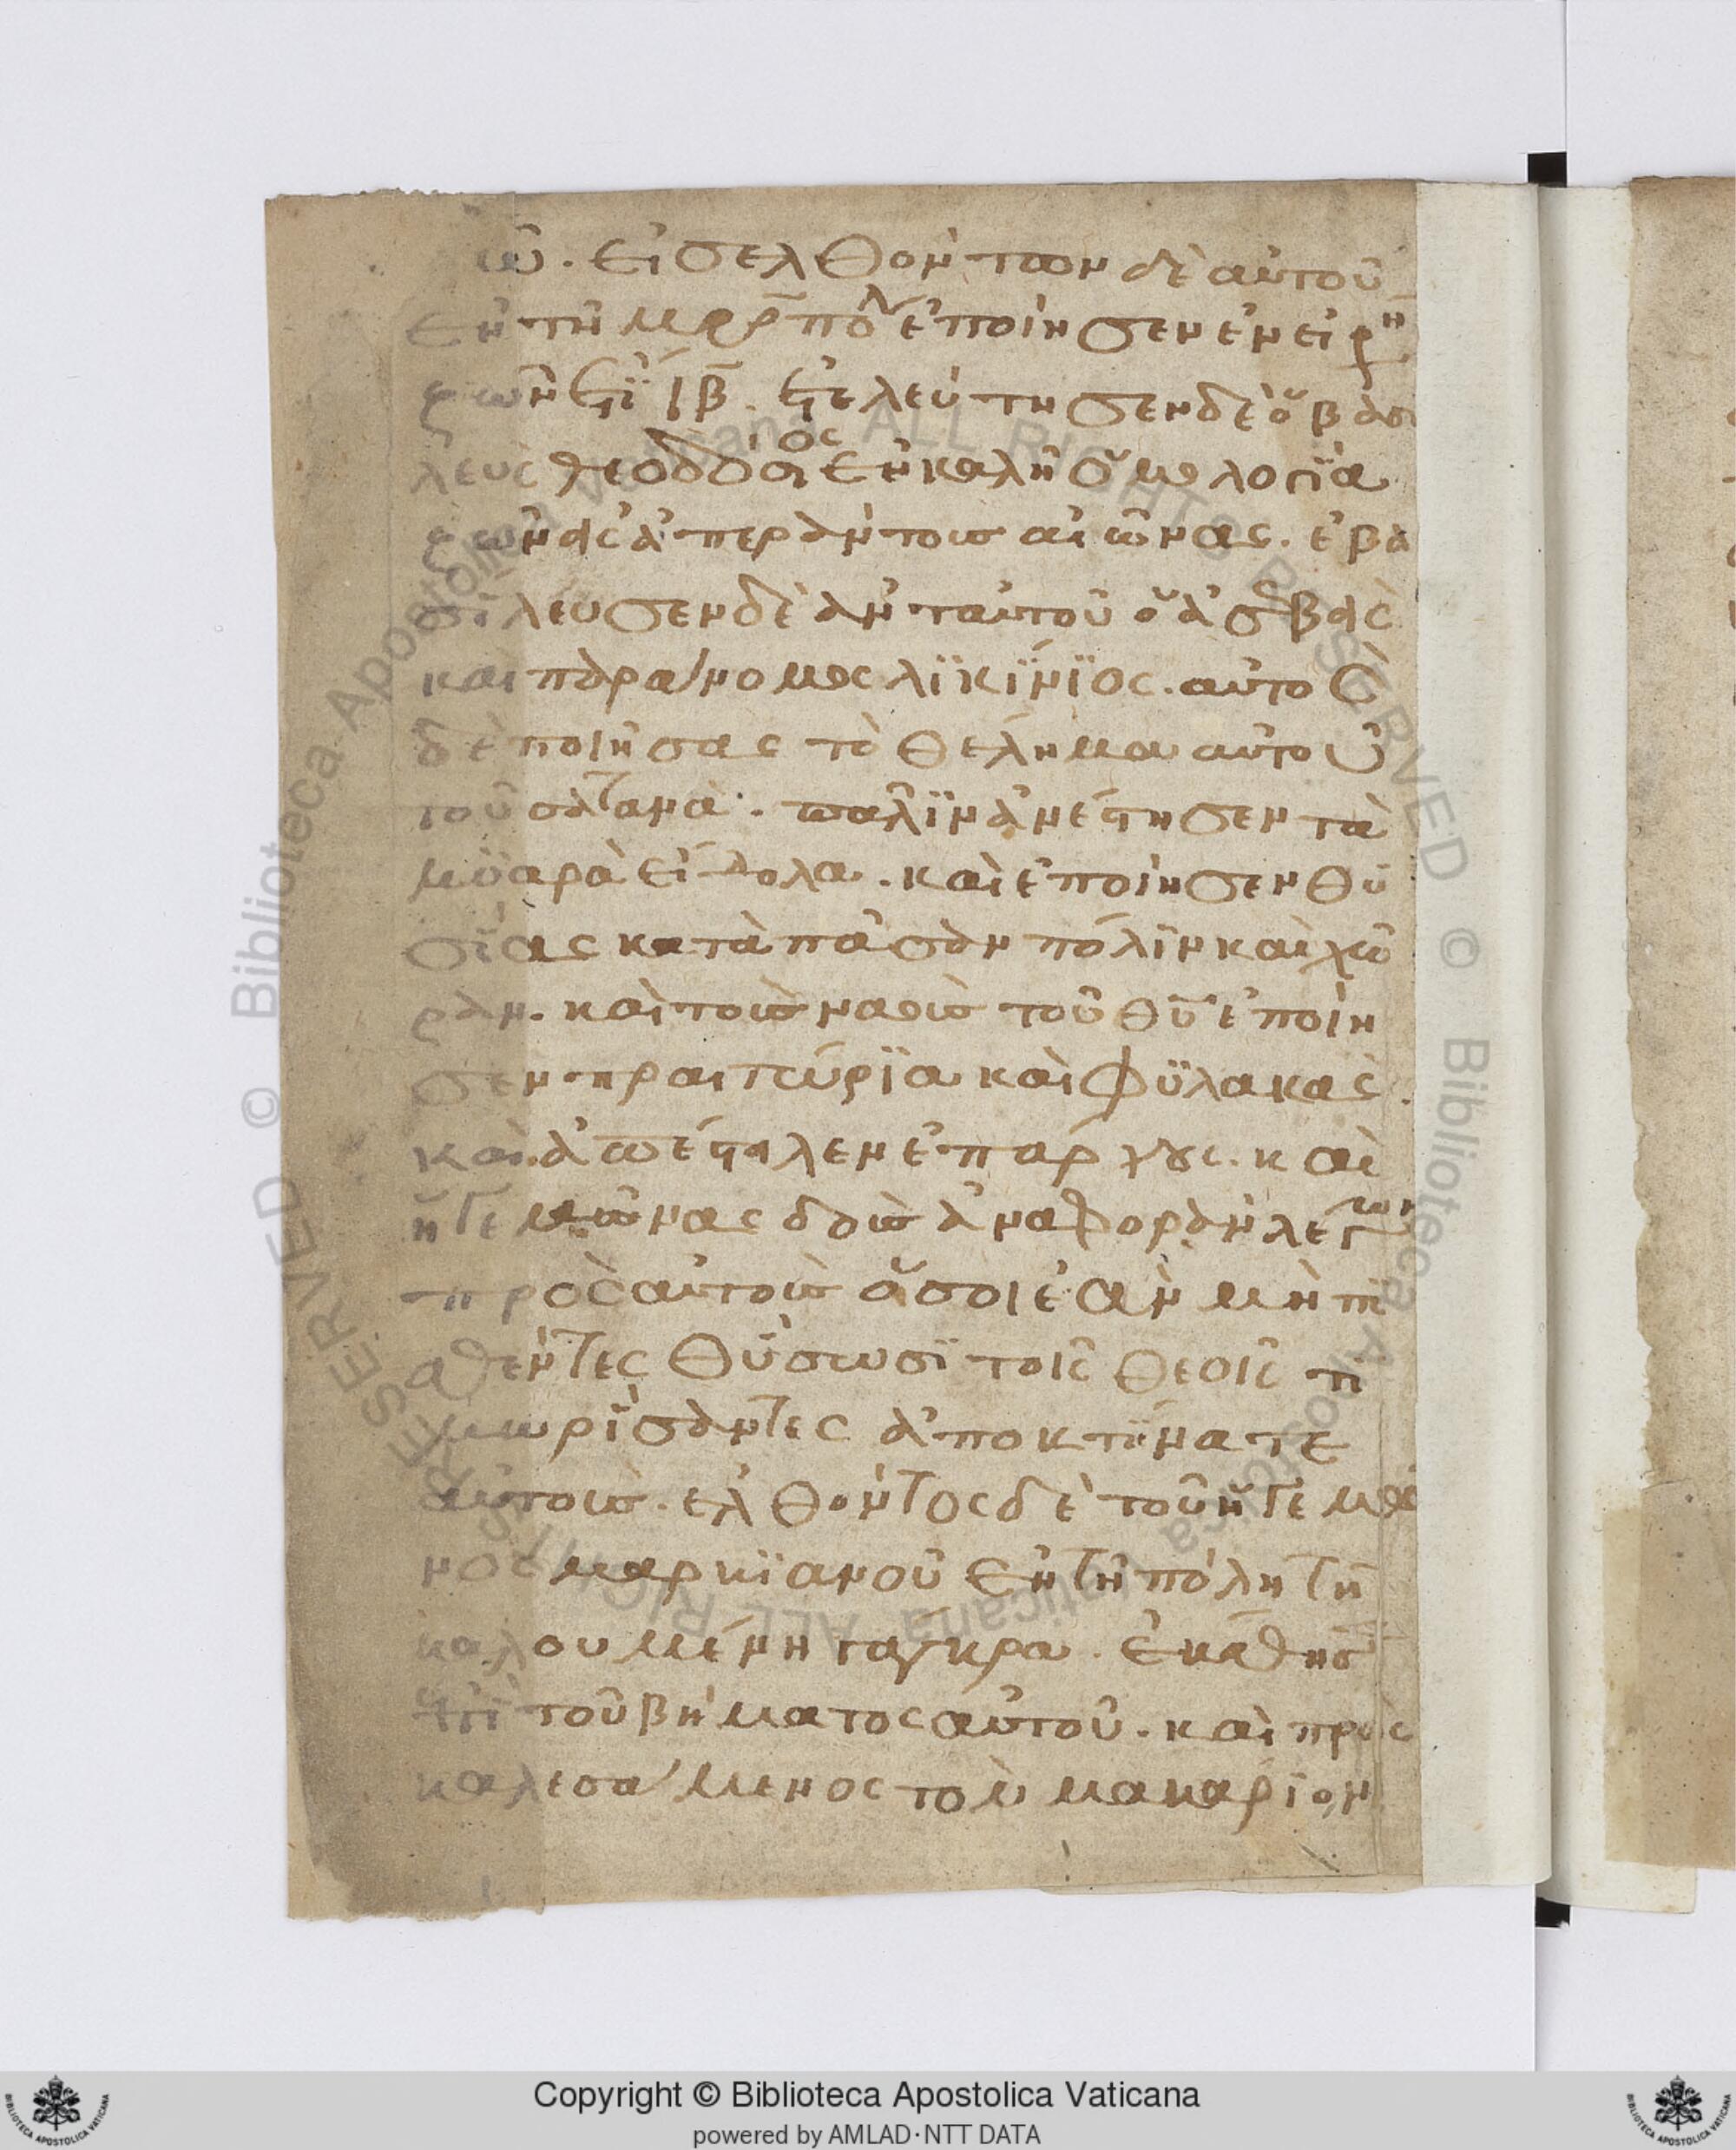 ῶ. εἰσελθόντων δὲ αὐτοῦ
ἐν τῆ μρ̅π̅ο̅λ ἐποίησεν ἐν εἰρη
ρων ἔτι ιβ. ἐτελεύτησεν δὲ ὁ βασι
λεὺς θεοδόσιος ἐν καλῆ ὁμολογΐα
εἰς ἀπεράντους αἰῶνας. ἐβα
σίλευσεν δὲ ἀντ αὐτοῦ ὁ ἀσεβὴς
και παράνομος λϊκίνϊος. αὐτὸς
δὲ ποιήσας τὸ θέλημα αὐτοῦ
τοῦ σατανᾶ. παλϊν ἀνέστησεν τὰ
μϋαρὰ εἴδολα. καὶ ἐποίησεν θυ
σΐας κατὰ πᾶσαν πόλϊν καὶ χώ
ραν. καὶ τοὺς ναοὺς τοῦ θυ̅ ἐποίη
σεν πραιτώρϊα καὶ φϋλακὰς.
καὶ ἀπέστηλεν ἐπάρχους. καὶ
ἡγεμῶνας δοὺς ἀναφορὰν λέγων
πρὸς αὐτοὺς ὅσοι ἐὰν μὴ πι
αθέντες θύσωσϊ τοῖς θεοῖς τι
μωρίσαντες ἀποκτίνατε
αὐτοὺς. ἐλθόντος δὲ τοῦ ἡγεμό
νος μαρκϊανοῦ ἐν τῆ πόλη τῆ
καλουμένη γάγκρα. ἐκάθησ
ἐπὶ τοῦ βήματος αὐτοῦ. καὶ προς
καλεσάμενος τὸν μακάριον
Copyright © Biblioteca Apostolica Vaticana
powered by AMLAD·NTT DATA